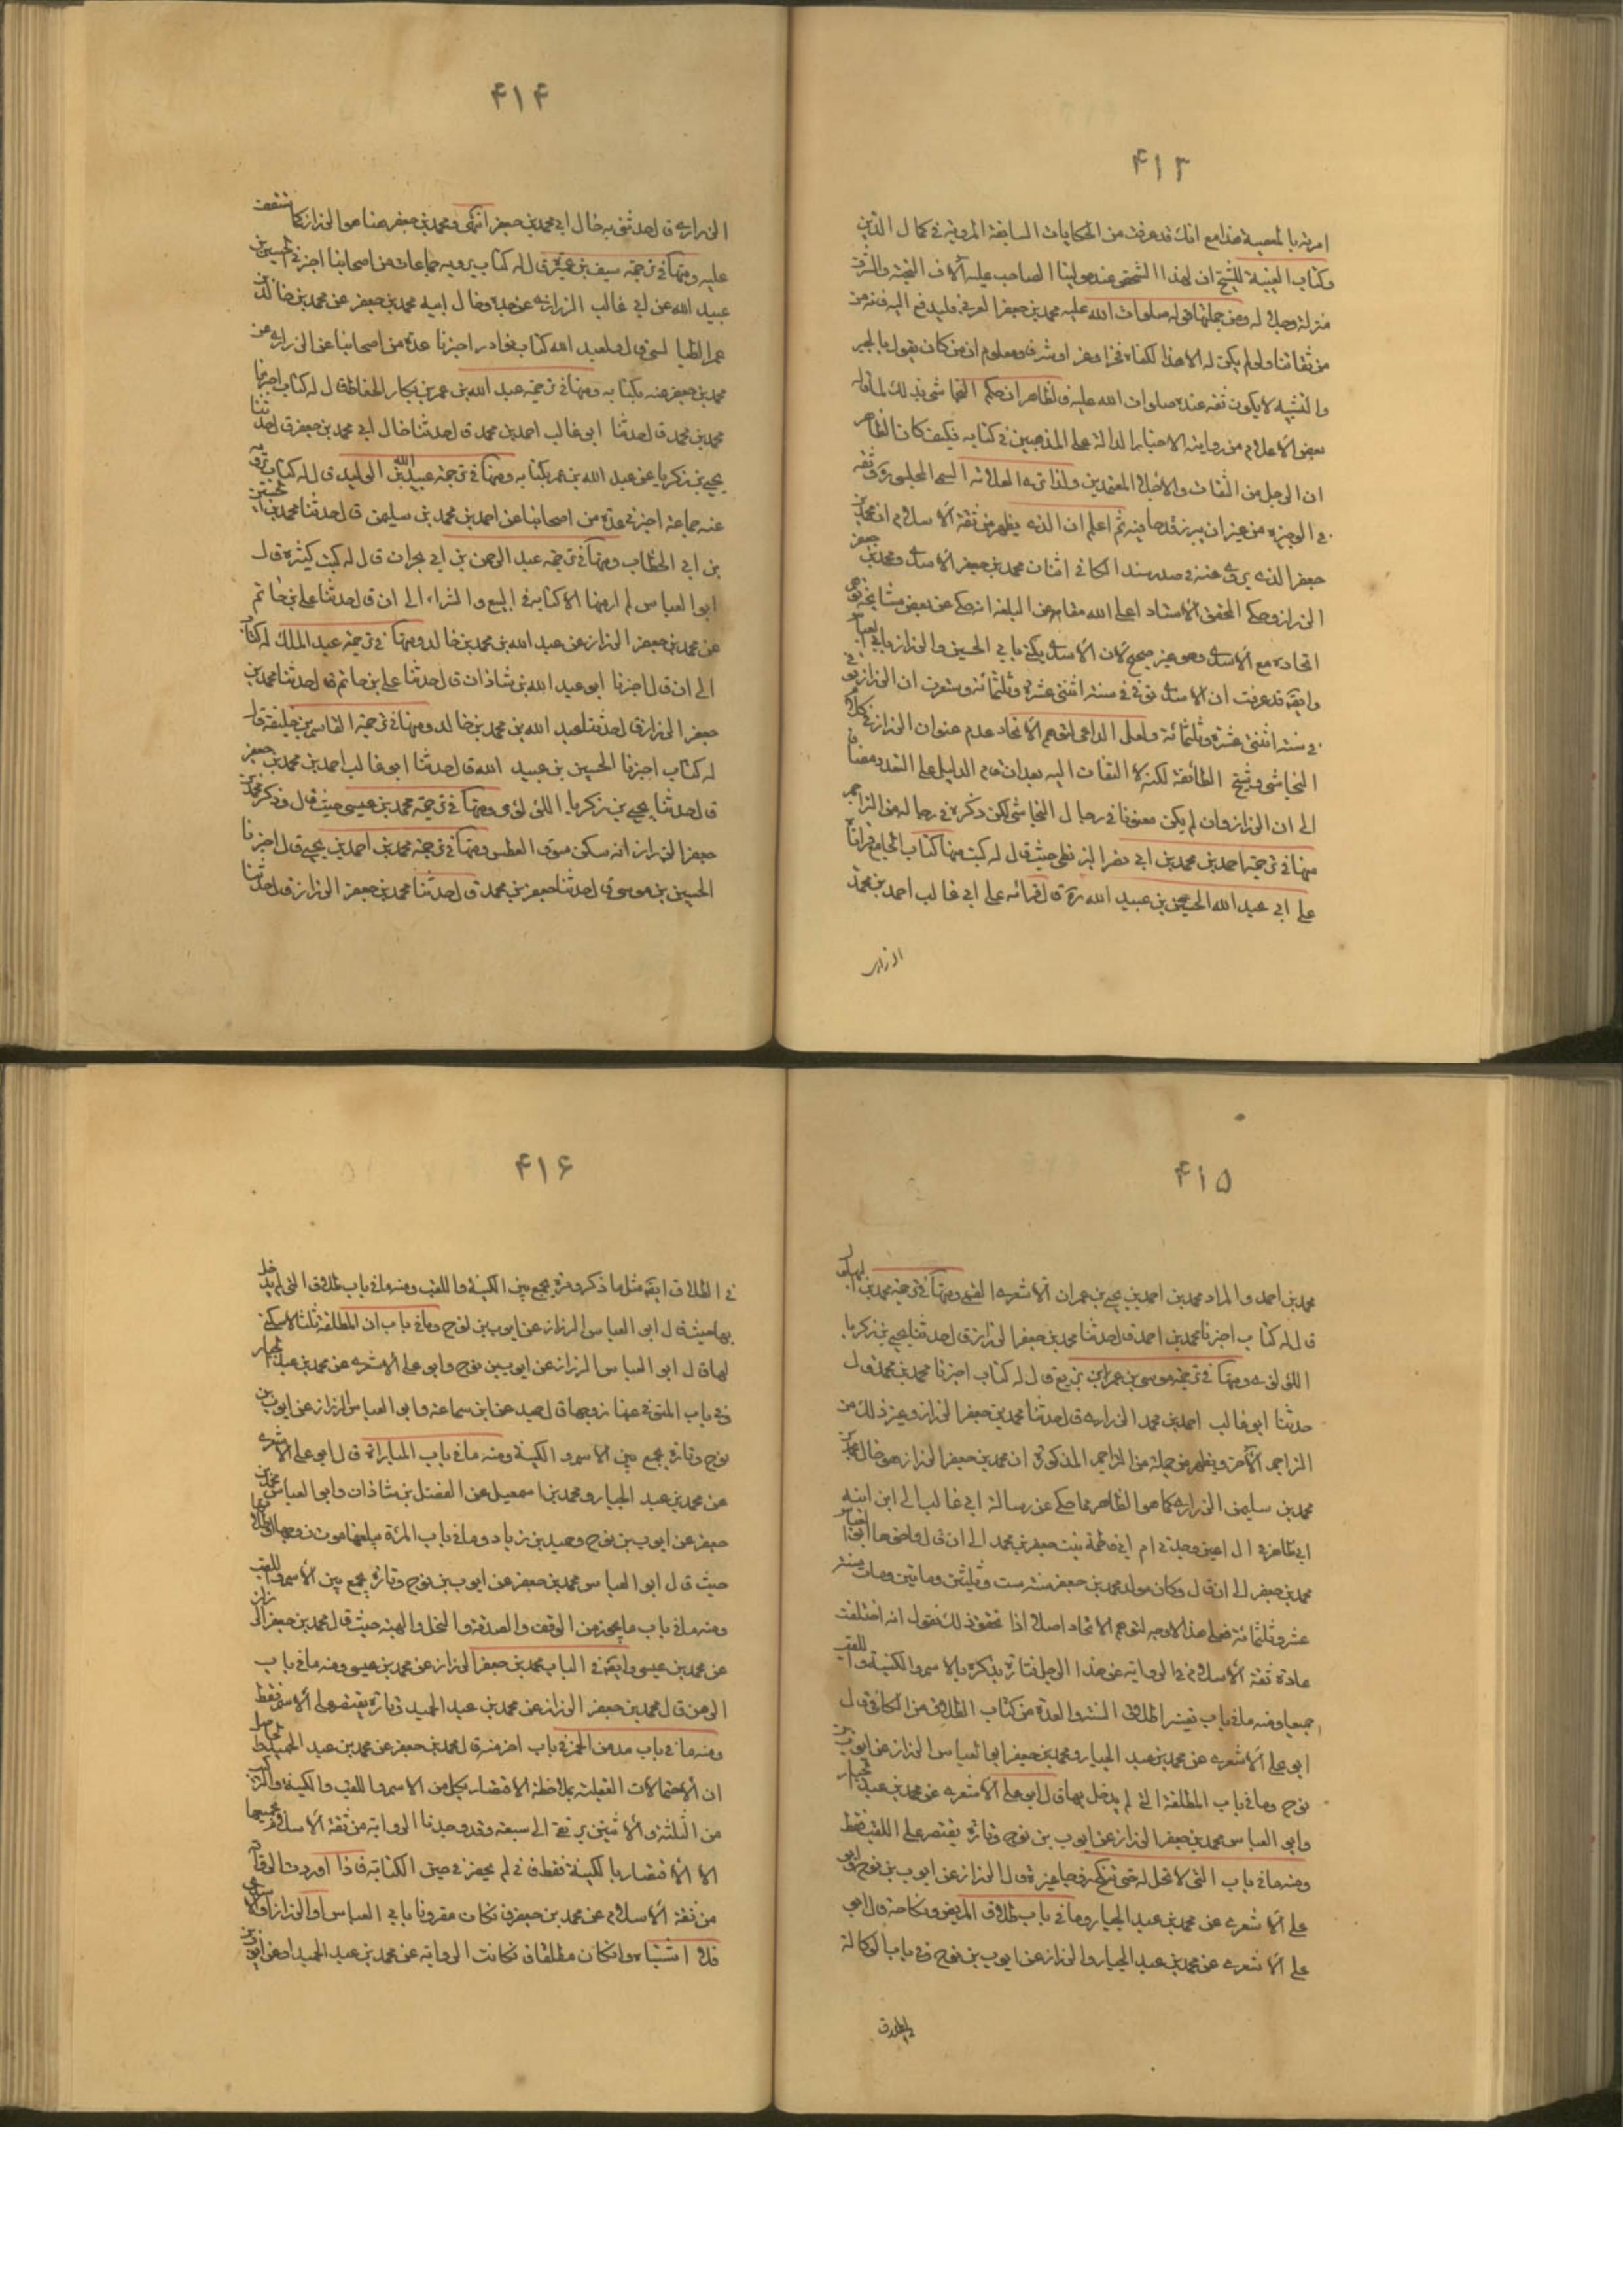 ۴۱۳
امرته بالمعصية هذا مع انك قد عرفت من الحكايات السابقة المروية في كمال الدين
وكتاب الغيبة للشيخ ان لهذا الشخص عند مولينا الصاحب عليه آلاف التحية والشرف
منزلة وجلالة ومن جملتها قوله صلوات الله عليه محمد بن جعفر العربي فليدفع اليه فانه من
من ثقاتنا ولو لم يكن له الا هذا لكفاه فخرا وعزا وشرفا ومعلوم ان من كان يقول بالجبر
والتشبيه لا يكون ثقة عنده صلوات الله عليه فالظاهر ان حكم النجاشي بذلك لما قاله
بعض الاعلام من روايته الاخبار الدالة على المذهبين في كتابه فكيف كان الظاهر
ان الرجل من الثقات والاجلاء المعتمدين ولذا ترى العلامة السمي المجلسي وثقه
في الوجيزة من غير ان يبرز قدحا فيه ثم اعلم ان الذي يظهر من ثقة الاسلام ان محمد بن
جعفر الذي يروى عنه في صدر سند الكافي اثنان محمد بن جعفر الاسدي ومحمد بن جعفر
الرزاز وحكى المحقق الاستاد اعلى الله مقامه عن البلغة انه حكى عن بعض مشايخه توهم
اتحاده مع الاسدي وهو غير صحيح لان الاسدي يكنى بابي الحسين والرزاز بابي العباس
وايضا قد عرفت ان الاسدي توفي في سنة اثنتي عشرة وثلثمائة وستعرف ان الرزاز توفي
في سنة اثنتي عشرة وثلثمائة ولعل الداعي لتوهم الاتحاد عدم عنوان الرزاز في كلام
النجاشي وشيخ الطائفة لكنه لا التفات اليه بعد ان قام الدليل على التعدد مضافا
الى ان الرزاز وان لم يكن معنونا في رجال النجاشي لكن ذكره في رجاله من التراجم
منها في ترجمة احمد بن محمد بن ابي نصر البزنطي حيث قال له كتب منها كتاب الجامع قراناه
على ابي عبد الله الحسين بن عبيد الله ره قال قرأته على ابي غالب احمد بن محمد
الزراري
۴۱۴
الزراري قال حدثني به خال ابي محمد بن جعفر انتهى ومحمد بن جعفر هنا هو الرزاز كما ستقف
عليه ومنها في ترجمة سيف بن عميرة قال له كتاب يرويه جماعات من اصحابنا اخبرني الحسين بن
عبيد الله عن ابي غالب الزراري عن جده وخال ابيه محمد بن جعفر عن محمد بن خالد
محمد بن جعفر عنه بكتابه ومنها في ترجمة عبد الله بن عمر بن بكار الحناط قال له كتاب اخبرنا
محمد بن محمد قال حدثنا ابو غالب احمد بن محمد قال حدثنا خال ابي محمد بن جعفر قال حدثنا
يحيى بن زكريا عن عبد الله بن عمر بكتابه ومنها في ترجمة عبيد الله بن الوليد قال له كتاب يرويه
عنه جماعة اخبرني عدة من اصحابنا عن احمد بن محمد بن سليمن قال حدثنا محمد بن الحسين
بن ابي الخطاب ومنها في ترجمة عبد الرحمن بن ابي نجران قال له كتب كثيرة قال
ابو العباس لم ار منها الا كتابه في البيع والشراء الى ان قال حدثنا علي بن حاتم
عن محمد بن جعفر الرزاز عن عبد الله بن محمد بن خالد ومنها في ترجمة عبد الملك له كتاب
الى ان قال اخبرنا ابو عبد الله بن شاذان قال حدثنا علي بن حاتم قال حدثنا محمد بن
جعفر الرزاز قال حدثنا عبد الله بن محمد بن خالد ومنها في ترجمة القاسم بن خليفة قال
له كتاب اخبرنا الحسين بن عبيد الله قال حدثنا ابو غالب احمد بن محمد بن جعفر
قال حدثنا يحيى بن زكريا اللؤلؤي ومنها في ترجمة محمد بن عيسى حيث قال وذكر محمد بن
جعفر الرزاز انه سكن سوق العطش ومنها في ترجمة محمد بن احمد بن يحيى قال اخبرنا
الحسين بن موسى قال حدثنا جعفر بن محمد قال حدثنا محمد بن جعفر الرزاز قال حدثنا
۴۱۵
محمد بن احمد والمراد محمد بن احمد بن يحيى بن عمران الاشعري القمي ومنها في ترجمة محمد بن بهلول
قال له كتاب اخبرنا محمد بن احمد قال حدثنا محمد بن جعفر الرزاز قال حدثنا يحيى بن زكريا
اللؤلؤي ومنها في ترجمة موسى بن عمر بن بزيع قال له كتاب اخبرنا محمد بن محمد قال
حدثنا ابو غالب احمد بن محمد الزراري قال حدثنا محمد بن جعفر الرزاز وغير ذلك من
التراجم الاخر ويظهر من جملة من التراجم المذكورة ان محمد بن جعفر الرزاز هو خال محمد بن
محمد بن سليمن الزراري كما هو الظاهر مما حكى عن رسالة ابي غالب الى ابن ابنه
ابي طاهر في ال اعين وجدتي ام ابي فاطمة بنت جعفر بن محمد الى ان قال واخوها ابو العباس
محمد بن جعفر الى ان قال وكان مولد محمد بن جعفر سنة ست وثلثين ومأتين ومات سنة
عشر وثلثمائة فعلى هذا لا وجه لتوهم الاتحاد اصلا اذا تحقق ذلك فنقول انه اختلفت
عادة ثقة الاسلام في الرواية عن هذا الرجل فتارة يذكره بالاسم والكنية واللقب
جميعا ومنه ما في باب تفسير طلاق السنة والعدة من كتاب الطلاق من الكافي قال
ابو علي الاشعري عن محمد بن عبد الجبار ومحمد بن جعفر ابو العباس الرزاز عن ايوب بن
نوح وما في باب المطلقة التي لم يدخل بها قال ابو علي الاشعري عن محمد بن عبد الجبار
وابو العباس محمد بن جعفر الرزاز عن ايوب بن نوح وتارة يقتصر على اللقب فقط
ومنه ما في باب التي لا تحل له حتى تنكح زوجا غيره قال الرزاز عن ايوب بن نوح وابو
علي الاشعري عن محمد بن عبد الجبار وما في باب طلاق المريض ونكاحه قال ابو
علي الاشعري عن محمد بن عبد الجبار والرزاز عن ايوب بن نوح وفي باب الوكالة
في الطلاق
۴۱۶
في الطلاق ايضا مثل ما ذكر وتارة يجمع بين الكنية واللقب ومنه ما في باب طلاق التي لم يدخل
بها حيث قال ابو العباس الرزاز عن ايوب بن نوح وما في باب ان المطلقة ثلثا لا سكنى
لها قال ابو العباس الرزاز عن ايوب بن نوح وابو علي الاشعري عن محمد بن عبد الجبار
وفي باب المتوفى عنها زوجها قال حميد عن ابن سماعة وابو العباس الرزاز عن ايوب بن
نوح وتارة يجمع بين الاسم والكنية ومنه ما في باب المباراة قال ابو علي الاشعري
عن محمد بن عبد الجبار ومحمد بن اسمعيل عن الفضل بن شاذان وابو العباس محمد بن
جعفر عن ايوب بن نوح وحميد بن زياد وما في باب المرئة يبلغها موت زوجها
حيث قال ابو العباس محمد بن جعفر عن ايوب بن نوح وتارة يجمع بين الاسم واللقب
ومنه ما في باب ما يجوز من الوقف والصدقة والنحل والهبة حيث قال محمد بن جعفر الرزاز
عن محمد بن عيسى وايضا في الباب محمد بن جعفر الرزاز عن محمد بن عيسى ومنه ما في باب
الرهن قال محمد بن جعفر الرزاز عن محمد بن عبد الحميد وتارة يقتصر على الاسم فقط
ومنه ما في باب مدمن الخمر في باب اخر منه قال محمد بن جعفر عن محمد بن عبد الحميد
ان الاحتمالات العقلية بملاحظة الاقتصار بكل من الاسم واللقب والكنية والتركيب
من الثلثة والاثنين يرتقى الى سبعة وقد وجدنا الرواية من ثقة الاسلام بجميعها
الا الاقتصار بالكنية فقط فاني لم يحضرني حين الكتابة فاذا اوردت الرواية
من ثقة الاسلام عن محمد بن جعفر فان كان مقرونا بابي العباس او الرزاز
فلا اشتباه وان كان مطلقا فان كانت الرواية عن محمد بن عبد الحميد او عن ايوب بن